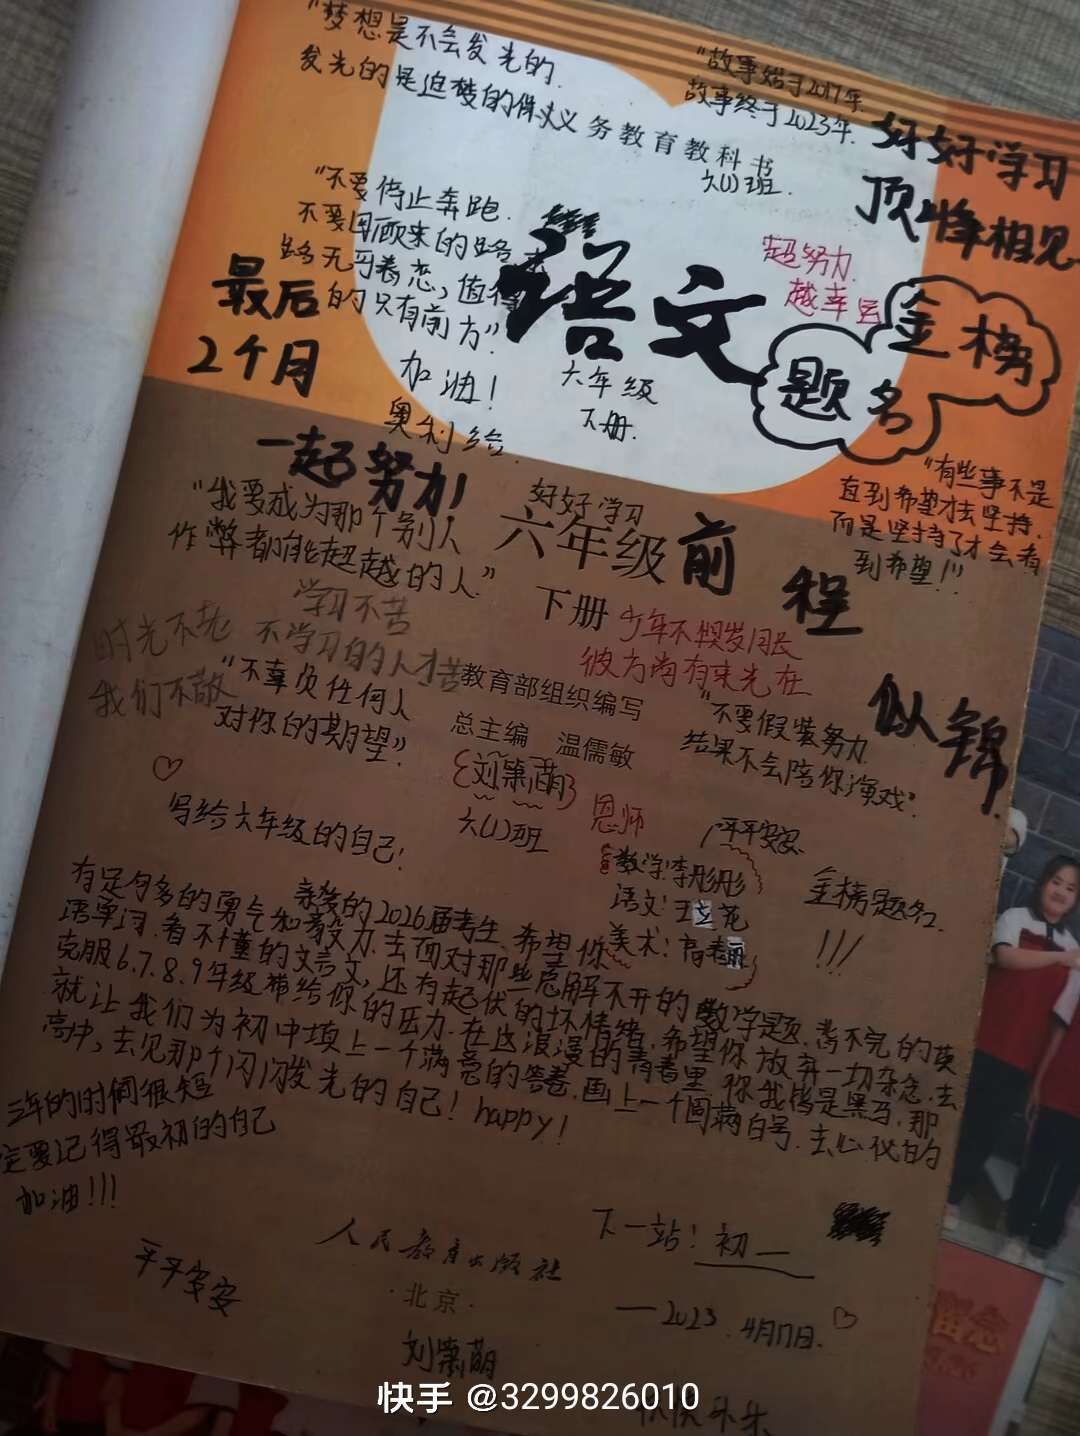 "梦想是不会发光的.
发光的是追梦的你
"故事始于2017年.
故事终于2023年.
好好学习
顶峰相见
义务教育教科书
六(1)班.
"不要停止奔跑.
不要回顾来的路
路无可眷恋,值得
的只有前方"
加油!
奥利给.
语文
六年级
下册.
超努力
越幸运
金榜
题名
最后
2个月
一起努力!
"有些事不是
直到希望才去坚持.
而是坚持了才会看
到希望!"
"我要成为那个别人
作弊都能超越的人"
好好学习
六年级
下册
前程
似锦
少年不惧岁月长
彼方尚有荣光在
学习不苦
不学习的人才苦
时光不老
我们不散
"不辜负任何人
对你的期望"
教育部组织编写
总主编 温儒敏
"不要假装努力
结果不会陪你演戏"
六(1)班
恩师
平平安安
数学:李彤彤
语文:王立花
美术:高春丽
金榜题名
!!!
写给六年级的自己!
亲爱的2026届考生.希望你
有足够多的勇气和毅力.去面对那些总解不开的数学题.背不完的英
语单词.看不懂的文言文,还有起伏的坏情绪.希望你放弃一切杂念.去
克服6.7.8.9年级带给你的压力.在这浪漫的青春里.你我皆是黑马.那
就让我们为初中填上一个满意的答卷.画上一个圆满句号.去心仪的
高中,去见那个闪闪发光的自己!happy!
三年的时间很短
一定要记得最初的自己
加油!!!
下一站:初一
平平安安
人民教育出版社
·北京·
—2023.4月17日.
快手 @3299826010